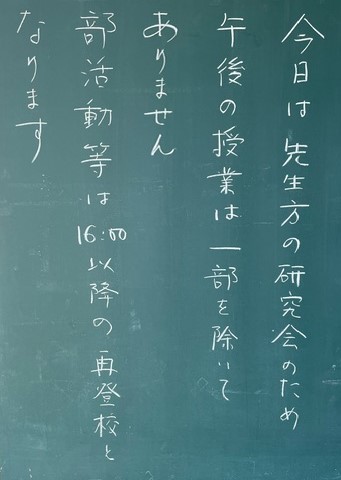 今日は先生方の研究会のため
午後の授業は一部を除いて
ありません
部活動等は16:00以降の再登校と
なります